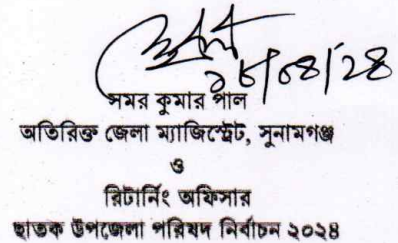 ১৮/০৪/২৪
সমর কুমার পাল
অতিরিক্ত জেলা ম্যাজিস্ট্রেট, সুনামগঞ্জ
ও
রিটার্নিং অফিসার
ছাতক উপজেলা পরিষদ নির্বাচন ২০২৪